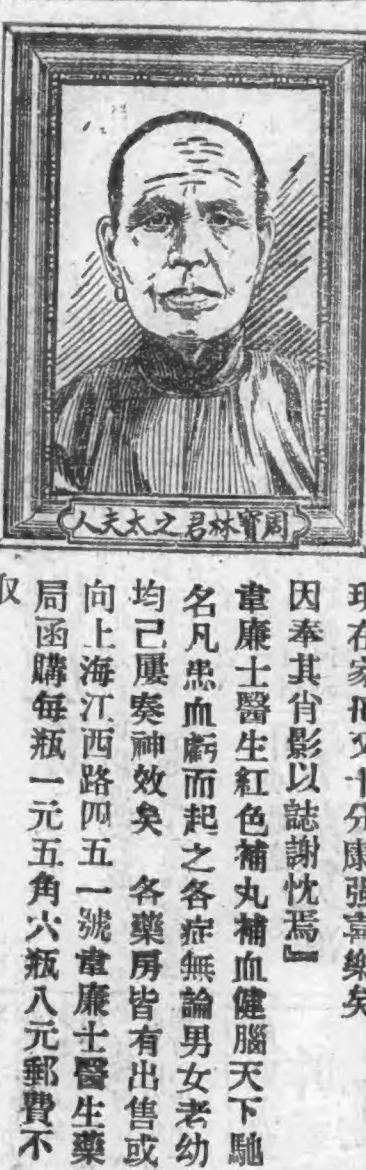 人夫太之君林寳周
現在家慈又十分康强喜樂矣
因奉其肖影以誌謝忱焉』
韋廉士醫生紅色補丸補血健腦天下馳
名凡患血虧而起之各症無論男女老幼
均已屢奏神效矣　各藥房皆有出售或
向上海江西路四五一號韋廉士醫生藥
局函購每瓶一元五角六瓶八元郵費不
取